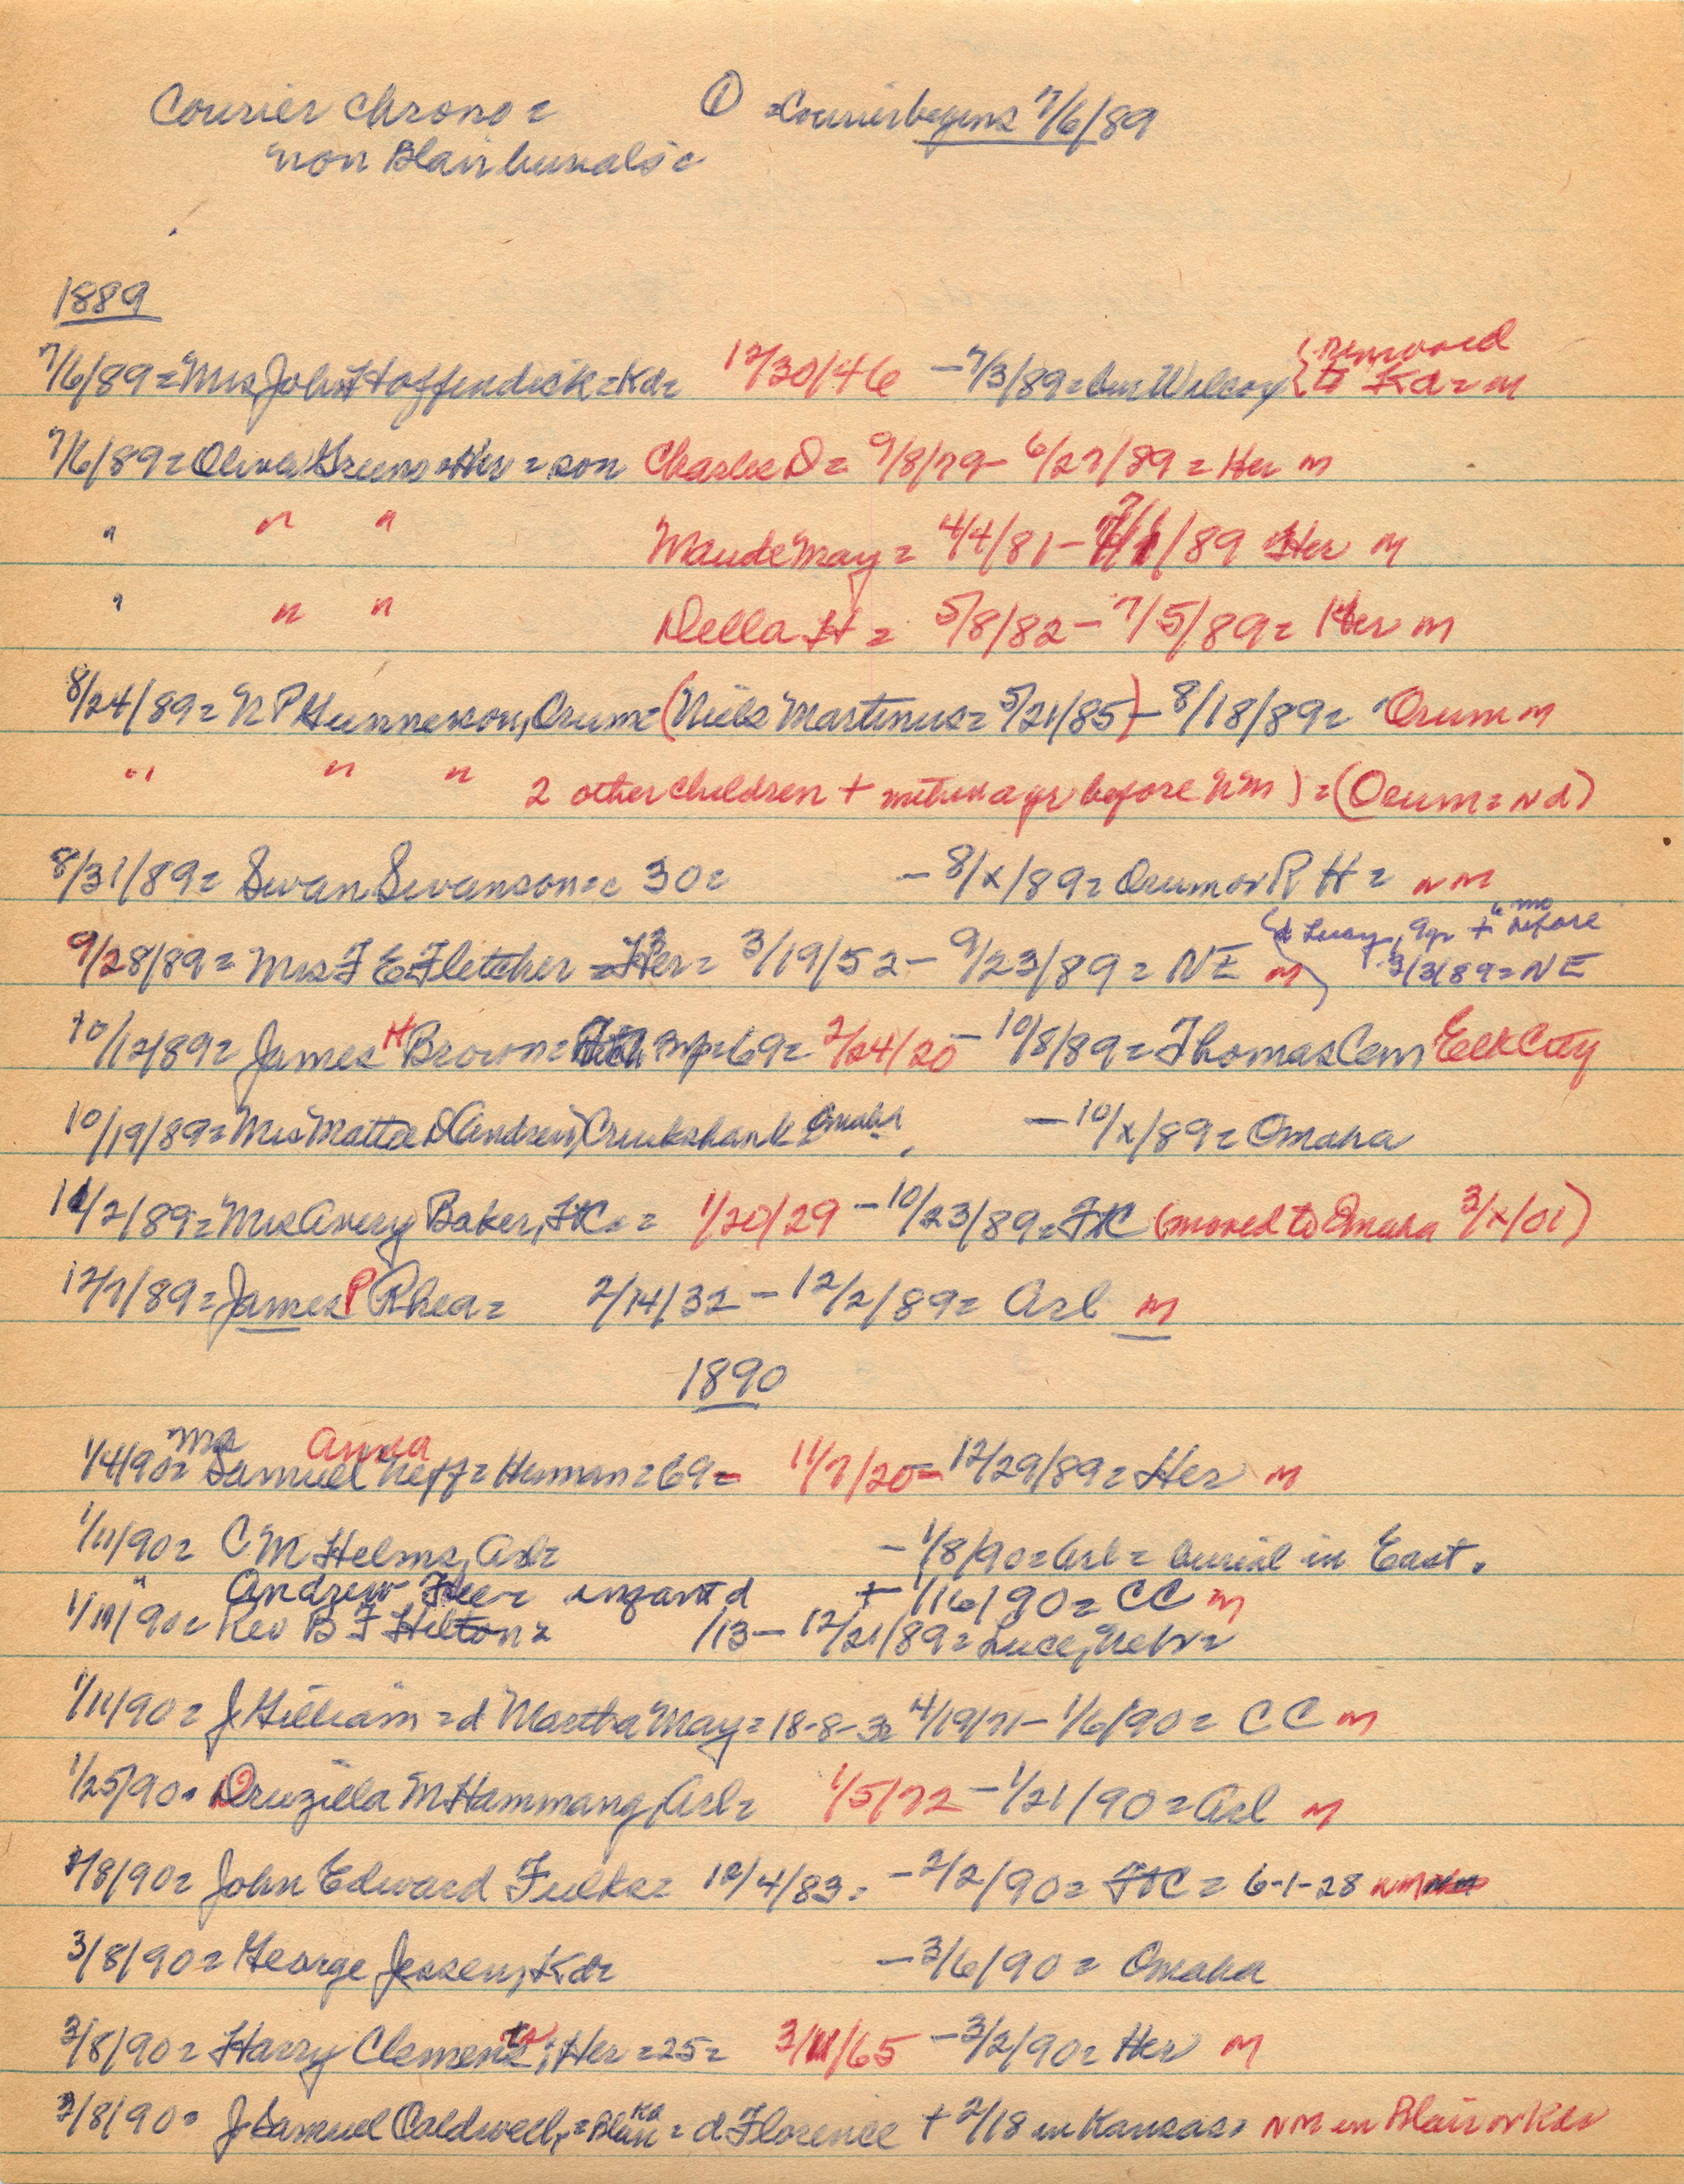 Courier Chrono = ① = Courier begins 7/6/89
non Blair burials =
1889
7/6/89 = Mrs John Hoffendick = Kd = 12/30/46 - 7/3/89 = bur Wilcox { removed
to Kd = m
7/6/89 = Oliver Greens = Her = son Charles D = 9/8/79 - 6/27/89 = Her m
" " " Maude May = 4/4/81 - 7/1/89 Her m
" " " Della H = 5/8/82 - 7/5/89 = Her m
8/24/89 = N P Gunnerson, Orum = (Niels Martinus = 5/21/85) - 8/18/89 = Orum m
" " " 2 other children + a yr before NM) = (Orum = nd)
8/31/89 = Swan Swanson = 30 = - 8/x/89 = Orum or R H = nm
& Lucy, 9yr + 6 mo before
9/28/89 = Mrs F E Fletcher = Her = 3/19/52 - 9/23/89 = NE m 3/3/89 = NE
10/12/89 = James H Brown = 69 = 2/24/20 - 10/8/89 = Thomas Cem Elk City
10/19/89 = Mrs Mattie D (Andrew) Cruikshank Omaha, - 10/x/89 = Omaha
11/2/89 = Mrs Avery Baker, Ft C = 1/20/29 - 10/23/89 = Ft C (moved to Omaha 3/x/01)
12/7/89 = James P Rhea = 2/14/32 - 12/2/89 = Arl m
1890
Mrs Anna
1/4/90 = Samuel Neff = Herman = 69 = 11/7/20 - 12/29/89 = Her m
1/11/90 = C M Helms, Arl = - 1/8/90 = Arl = burial in East.
" Andrew infant d + 1/16/90 = CC m
1/11/90 = Rev B F Hilton = /13 - 12/21/89 = Luce, Nebr =
1/11/90 = J Gilliam = d Martha May = 18-8-3 = 4/19/71 - 1/6/90 = CC m
1/25/90 = Druzilla M Hammang, Arl = 1/5/72 - 1/21/90 = Arl m
2/8/90 = John Edward Fulks = 12/4/83 = - 2/2/90 = Ft C = 6-1-28 nm
3/8/90 = George Jessen, Kd = - 3/6/90 = Omaha
3/8/90 = Harry Clements; Her = 25 = 3/11/65 - 3/2/90 = Her m
3/8/90 = J Samuel Caldwell, = Blair Kd = d Florence + 2/18 in Kansas = NM in Blair or Kd